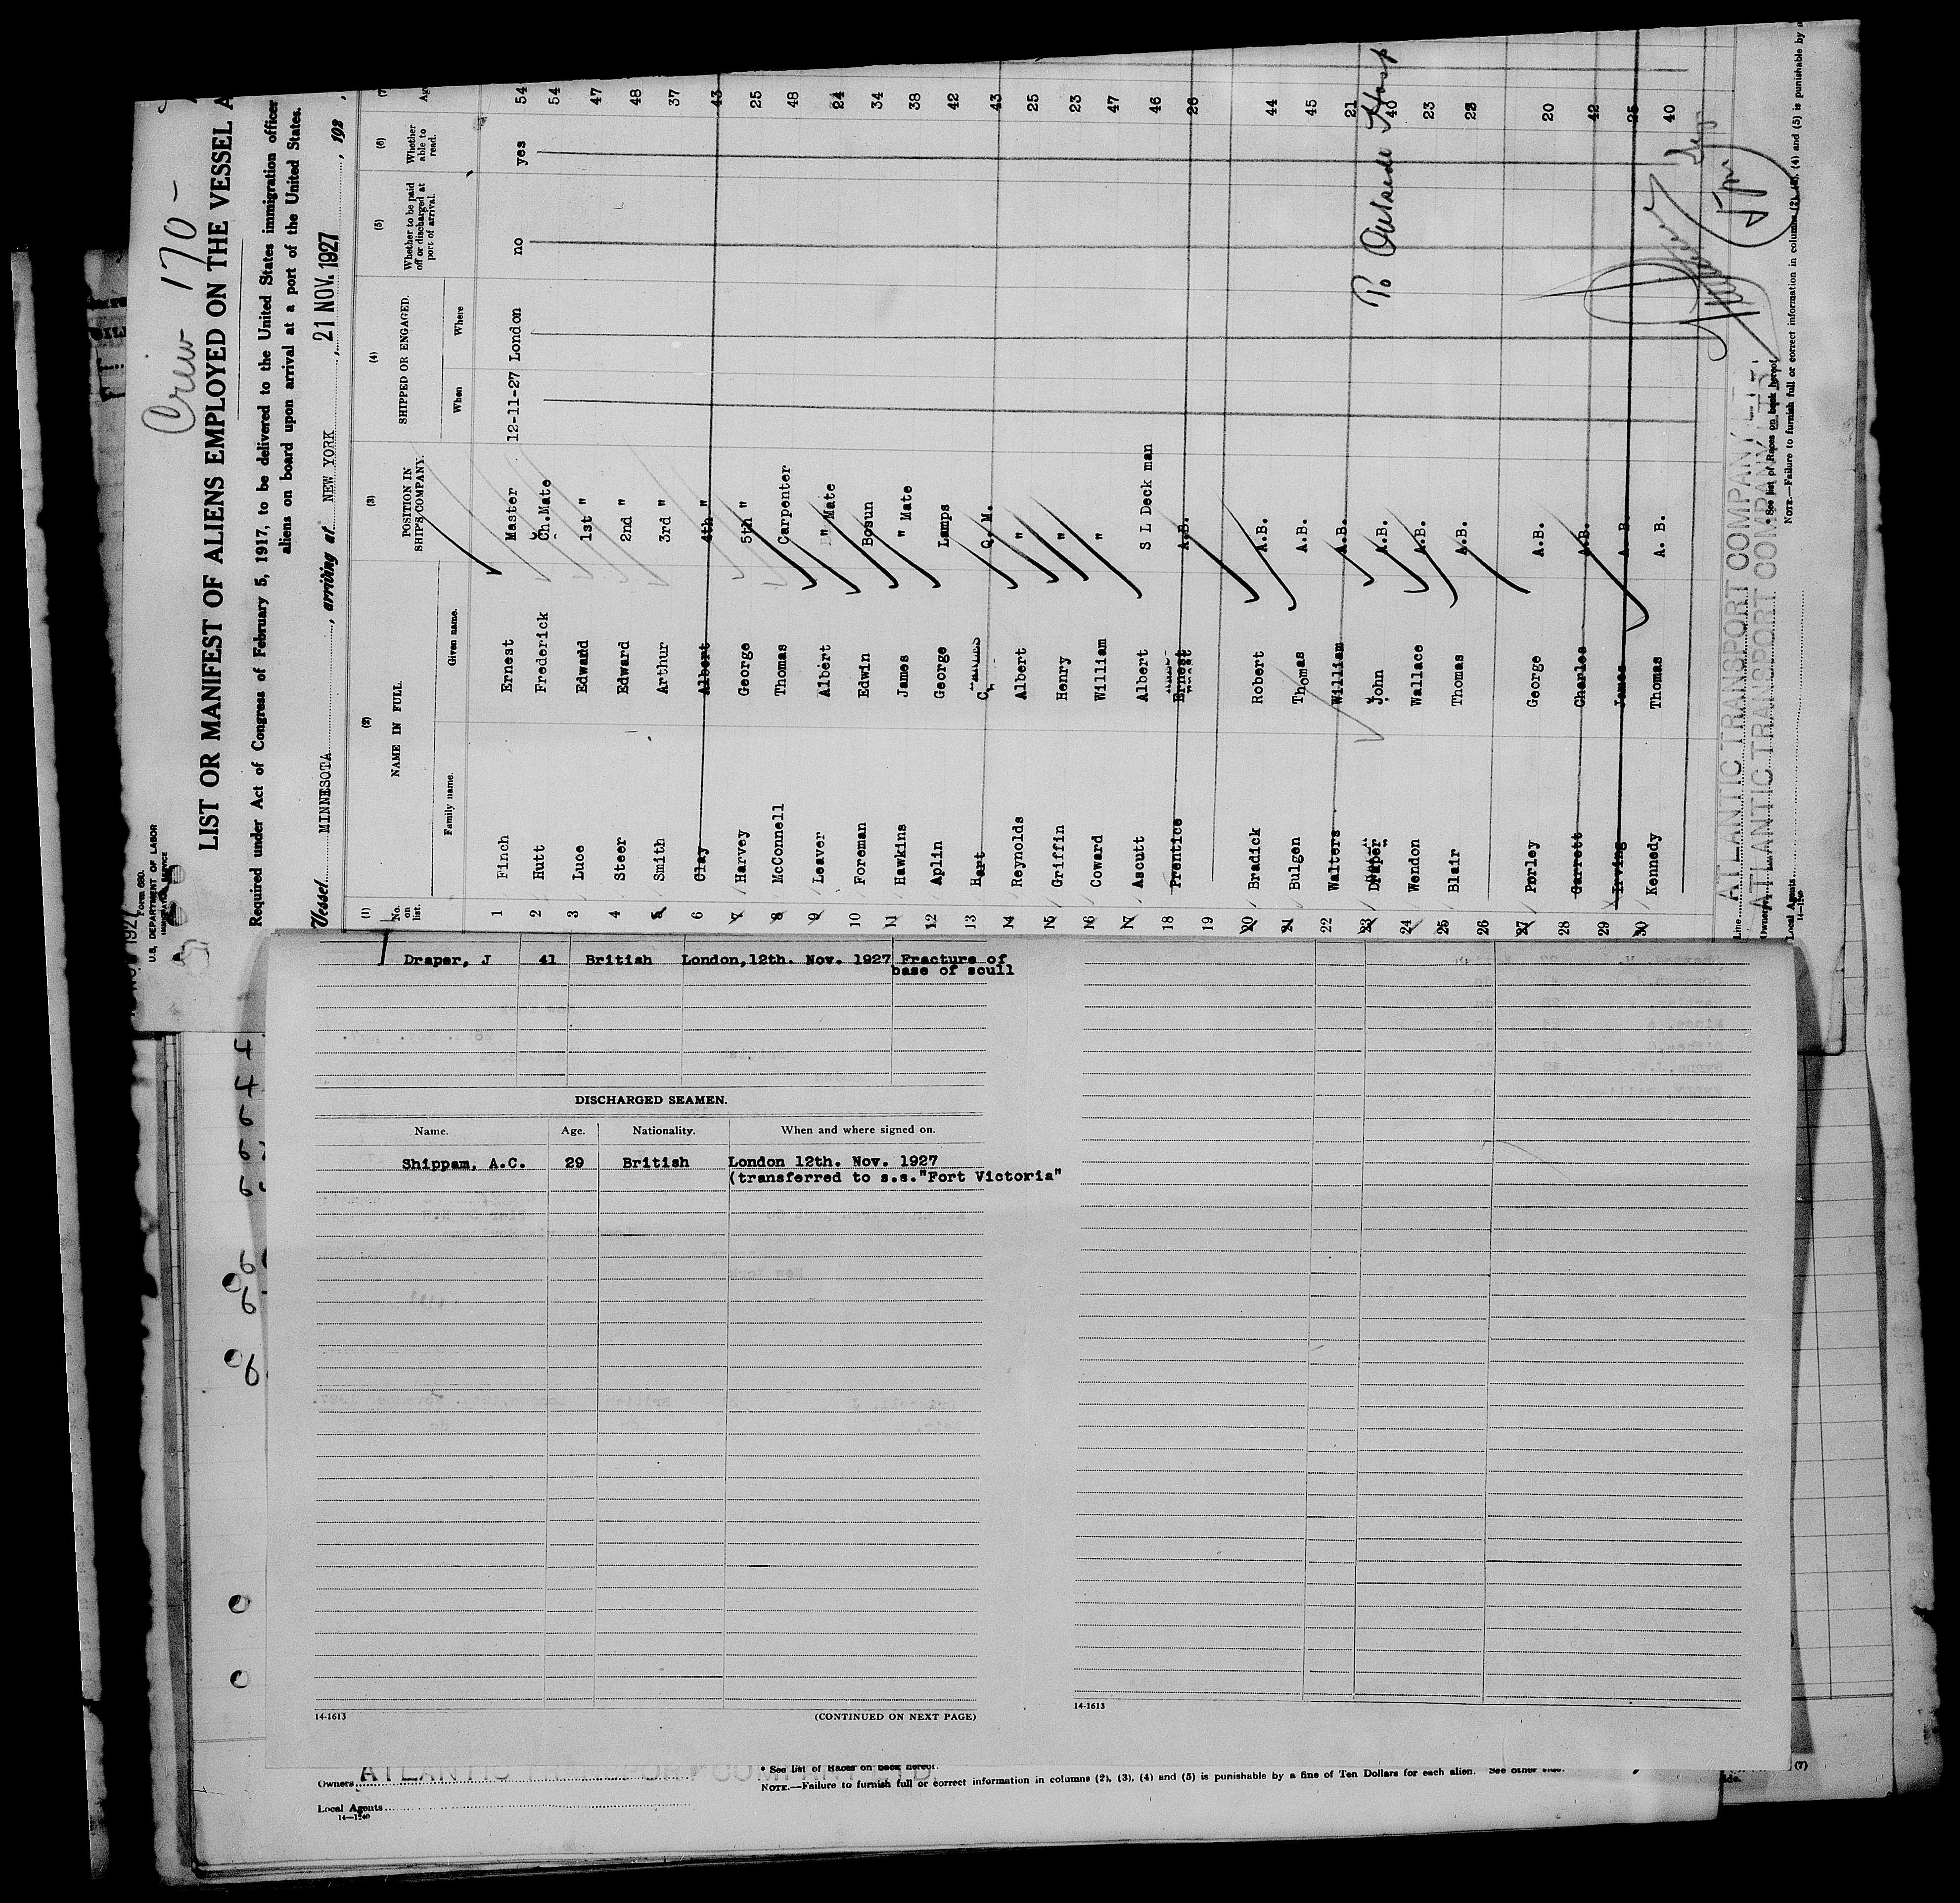 Crew 170 -
Form 680.
U.S. DEPARTMENT OF LABOR
IMMIGRATION SERVICE
LIST OR MANIFEST OF ALIENS EMPLOYED ON THE VESSEL A
Required under Act of Congress of February 5, 1917, to be delivered to the United States immigration officer
aliens on board upon arrival at a port of the United States.
Vessel MINNESOTA, arriving at NEW YORK, 21 NOV. 1927, 192
(1) (2) (3) (4) (5) (6) (7)
No. on list. NAME IN FULL. POSITION IN SHIP'S COMPANY. SHIPPED OR ENGAGED. Whether to be paid off or discharged at port of arrival. Whether able to read. Ag
Family name. Given name. When Where
1 Finch Ernest Master 12-11-27 London no yes 54
2 Hutt Frederick Ch.Mate 54
3 Luce Edward 1st " 47
4 Steer Edward 2nd " 48
5 Smith Arthur 3rd " 37
6 Clay Albert 4th " 43
7 Harvey George 5th " 25
8 McConnell Thomas Carpenter 48
9 Leaver Albert " Mate 24
10 Foreman Edwin Bosun 34
11 Hawkins James " Mate 38
12 Aplin George Lamps 42
13 Hart C. Q.M. 43
14 Reynolds Albert " 25
15 Griffin Henry " 23
16 Coward William " 47
17 Ascutt Albert S L Deck man 46
18 Prentice Ernest A.B. 26
19
20 Bradick Robert A.B. 44
21 Bulgen Thomas A.B. 45
22 Walters William A.B. 21
23 Draper John A.B. 40 To Outside Hosp
24 Wendon Wallace A.B. 23
25 Blair Thomas A.B. 28
26
27 Porley George A.B. 20
28 Garrett Charles A.B. 42
29 Irving James A B. 25
30 Kennedy Thomas A. B. 40
Line ATLANTIC TRANSPORT COMPANY
Owners ATLANTIC TRANSPORT COMPANY
Local Agents
14-1240
* See list of Races on back hereof.
NOTE.—Failure to furnish full or correct information in columns (2), (3), (4) and (5) is punishable by a
Draper, J 41 British London,12th. Nov. 1927 Fracture of
base of scull
DISCHARGED SEAMEN.
Name. Age. Nationality. When and where signed on.
Shippam, A.C. 29 British London 12th. Nov. 1927
(transferred to s.s."Fort Victoria"
14-1613 (CONTINUED ON NEXT PAGE)
14-1613
Owners ATLANTIC TRANSPORT COMPANY
* See list of Races on back hereof.
NOTE.—Failure to furnish full or correct information in columns (2), (3), (4) and (5) is punishable by a fine of Ten Dollars for each alien. See other side.
Local Agents
14-1240
(7)